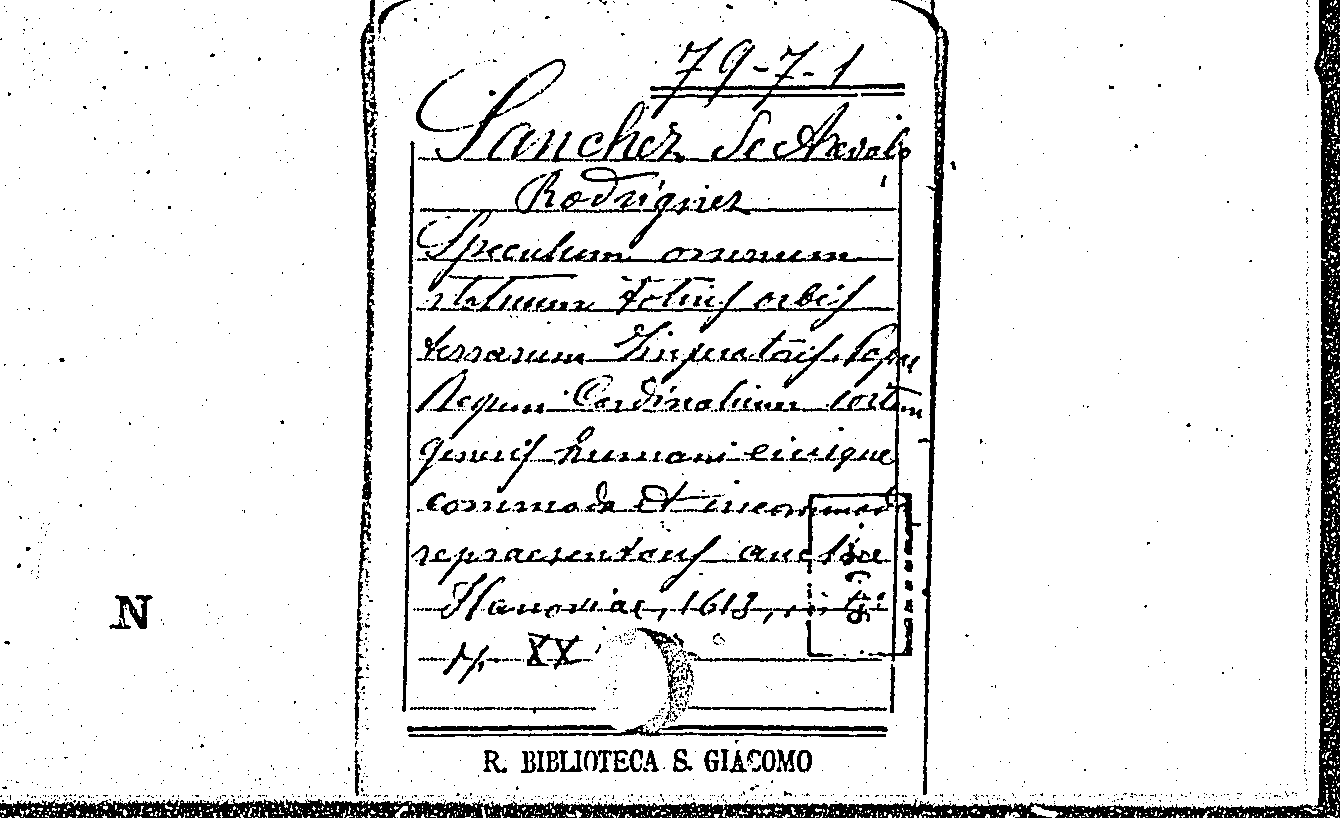 79-7-1
Sanchez de Arevalo
Rodriguez
Speculum omnium
statuum totius orbis
terrarum Imperatoris, Papae
Regum Cardinalium
generis humani
commoda et incommoda
repraesentans
Hanoviae, 1613, in
XX
N
R. BIBLIOTECA S. GIACOMO